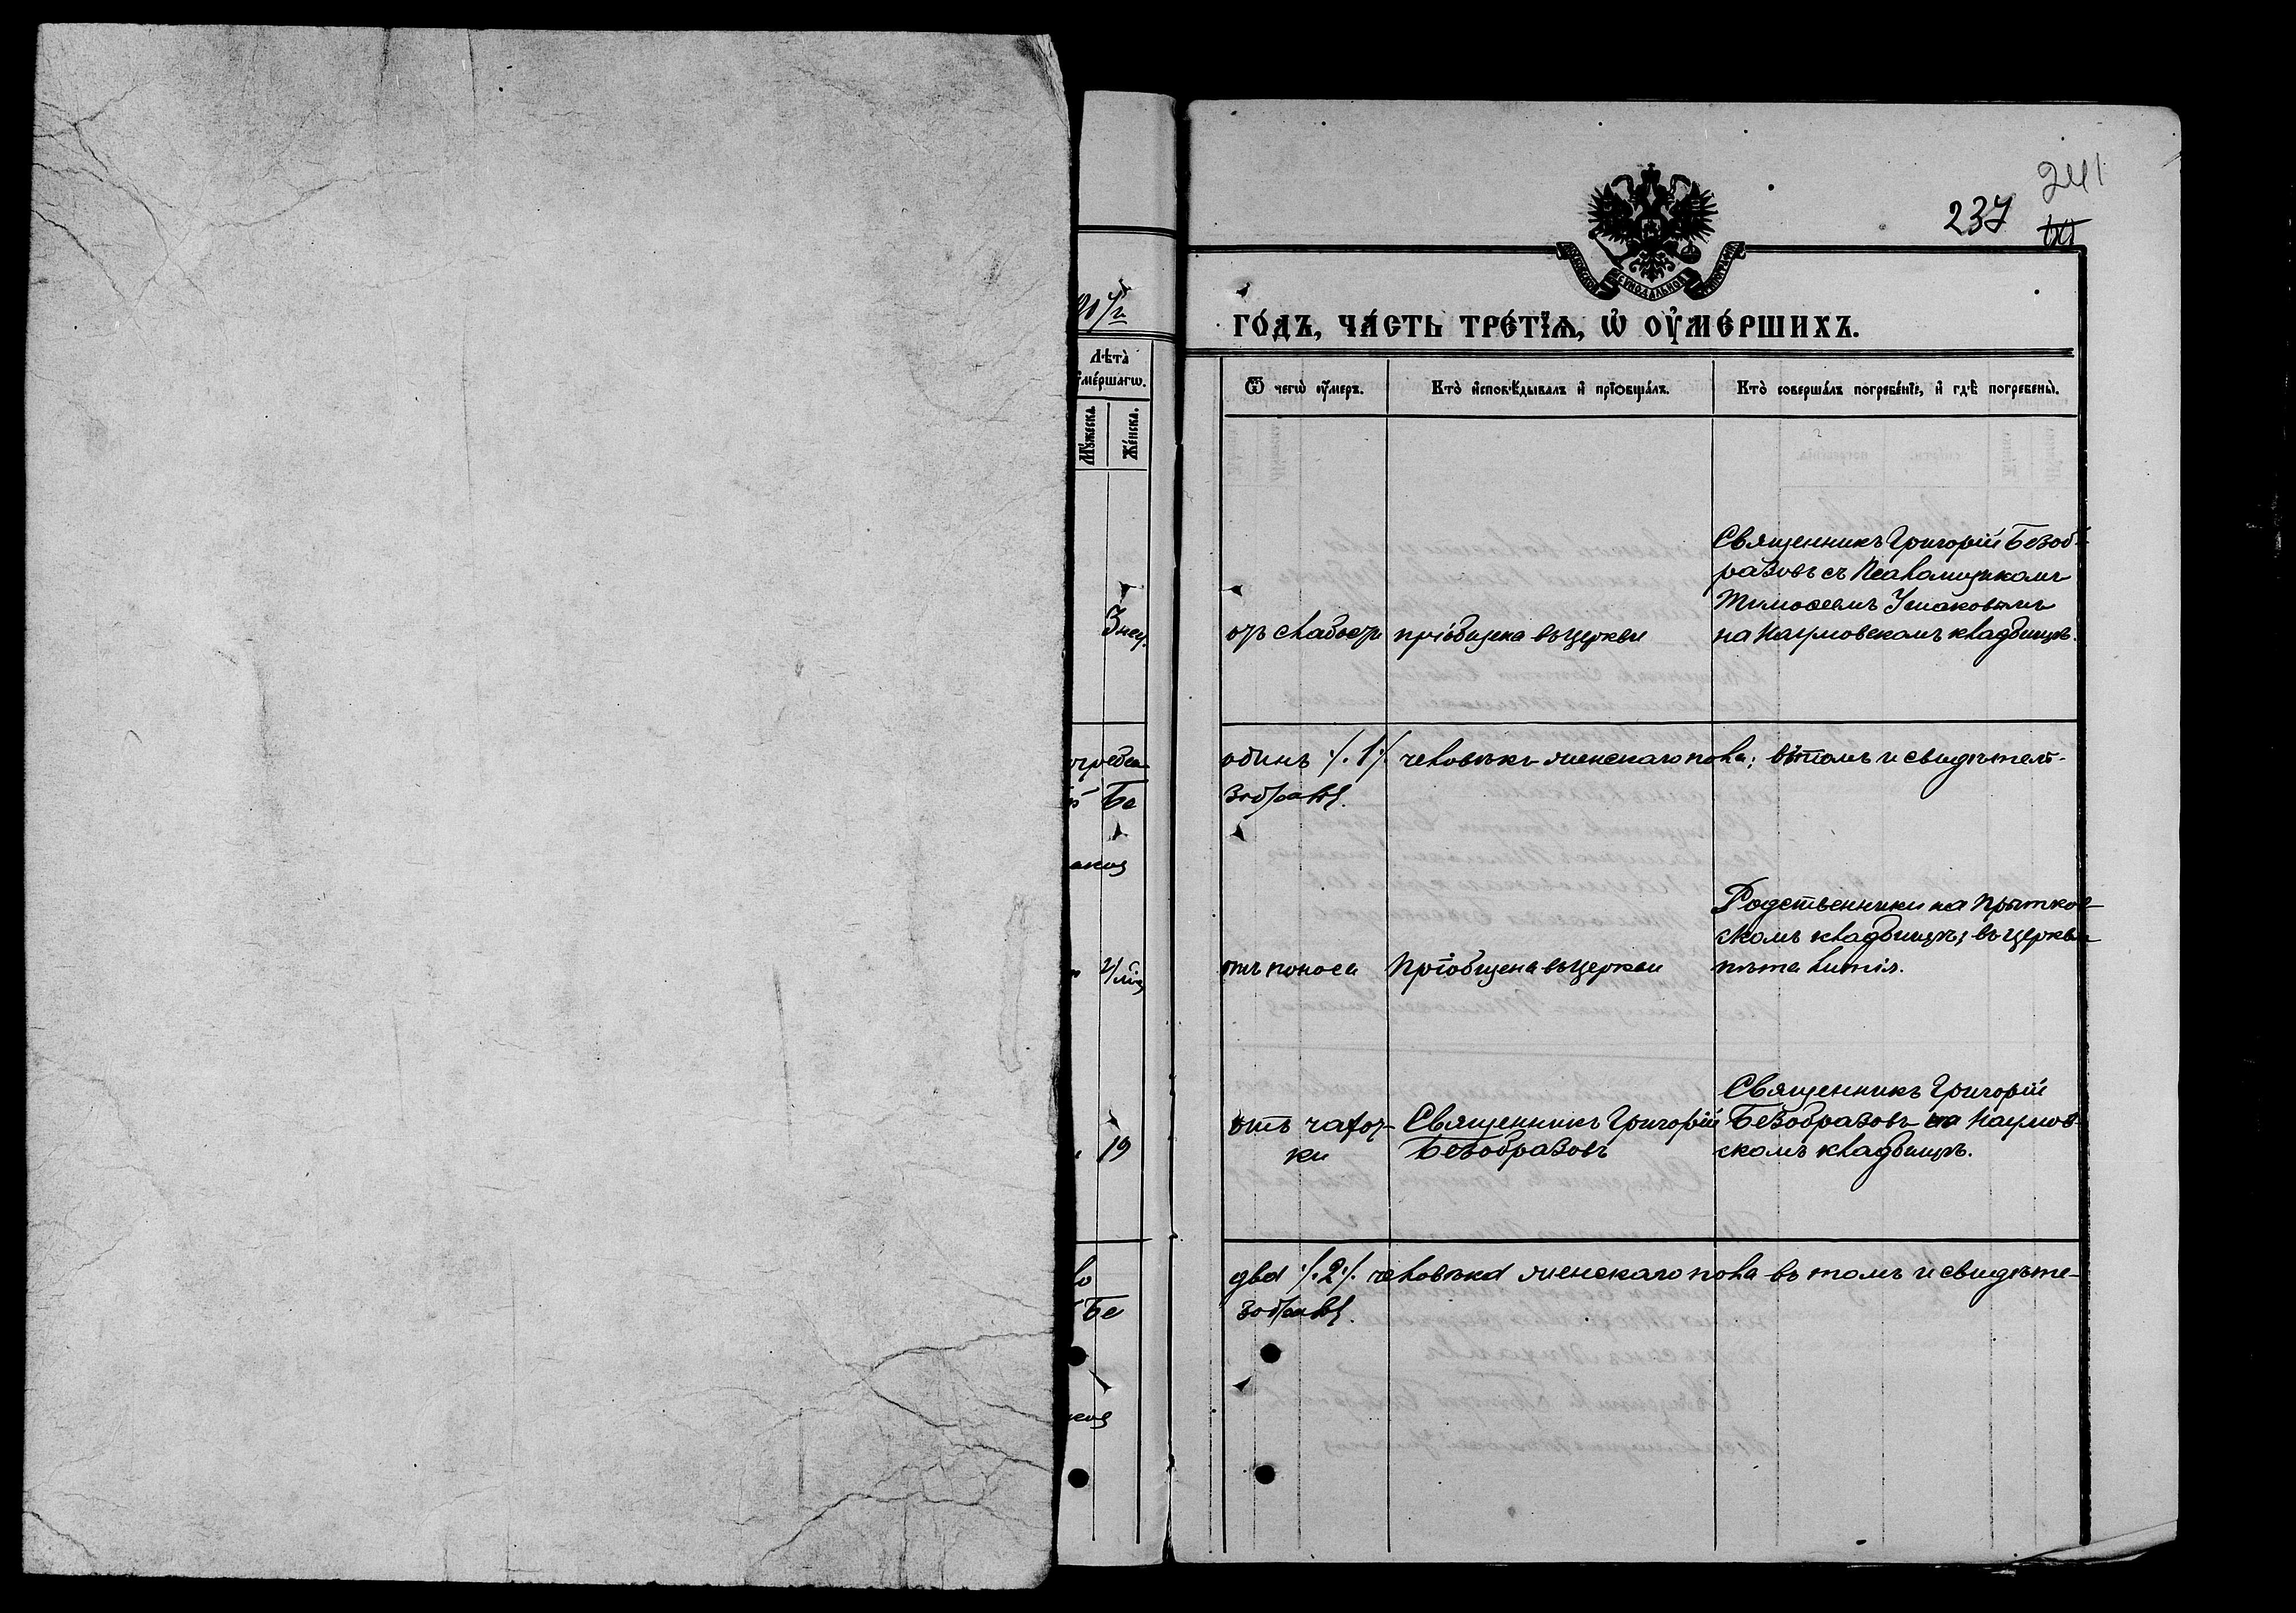 241
237
годъ, часть третїѧ, ѡ оумершихъ.
Лѣта
умершагѡ.
Мужеска.
Женска.
Ѿ чегѡ умеръ.
Кто исповѣдывалъ и прїѡбщалъ.
Кто совершалъ погребенїе, и гдѣ погребены.
3 нед.
отъ слабости
пріобщена въ церкви
Священникъ Григорій Безоб-
разовъ съ Псаломщикомъ
Тимоѳеемъ Ушаковымъ
на Наумовскомъ кладбищѣ.
погребе
одинъ /.1/. человѣкъ женскаго пола; въ томъ и свидѣтель-
Бе
зобразовъ
отъ поноса
Пріобщена въ церкви
Родственники на Прытков-
скомъ кладбищѣ; въ церкви
пѣта литія.
19
отъ чахот-
ки
Священникъ Григорій
Безобразовъ
Священникъ Григорій
Безобразовъ на Наумов-
скомъ кладбищѣ.
два /.2/. человѣка женскаго пола въ томъ и свидѣте-
Бе
зобразовъ